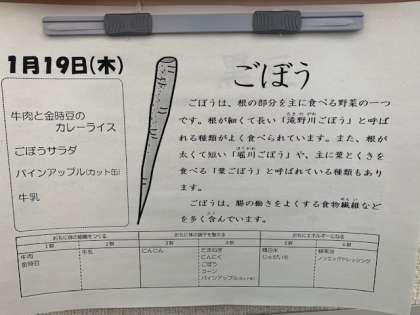 1月19日(木)
牛肉と金時豆の
カレーライス
ごぼうサラダ
パインアップル(カット缶)
牛乳
ごぼう
ごぼうは、根の部分を主に食べる野菜の一つ
です。根が細くて長い「滝野川ごぼう」と呼ば
れる種類がよく食べられています。また、根が
太くて短い「堀川ごぼう」や、主に葉とくきを
食べる「葉ごぼう」と呼ばれている種類もあり
ます。
ごぼうは、腸の働きをよくする食物繊維など
を多く含んでいます。
おもに体の組織をつくる おもに体の調子を整える おもにエネルギーになる
1群 2群 3群 4群 5群 6群
牛肉 牛乳 にんじん たまねぎ 精白米
金時豆 にんにく じゃがいも ノンエッグドレッシング
ごぼう
コーン
パインアップル(カット缶)